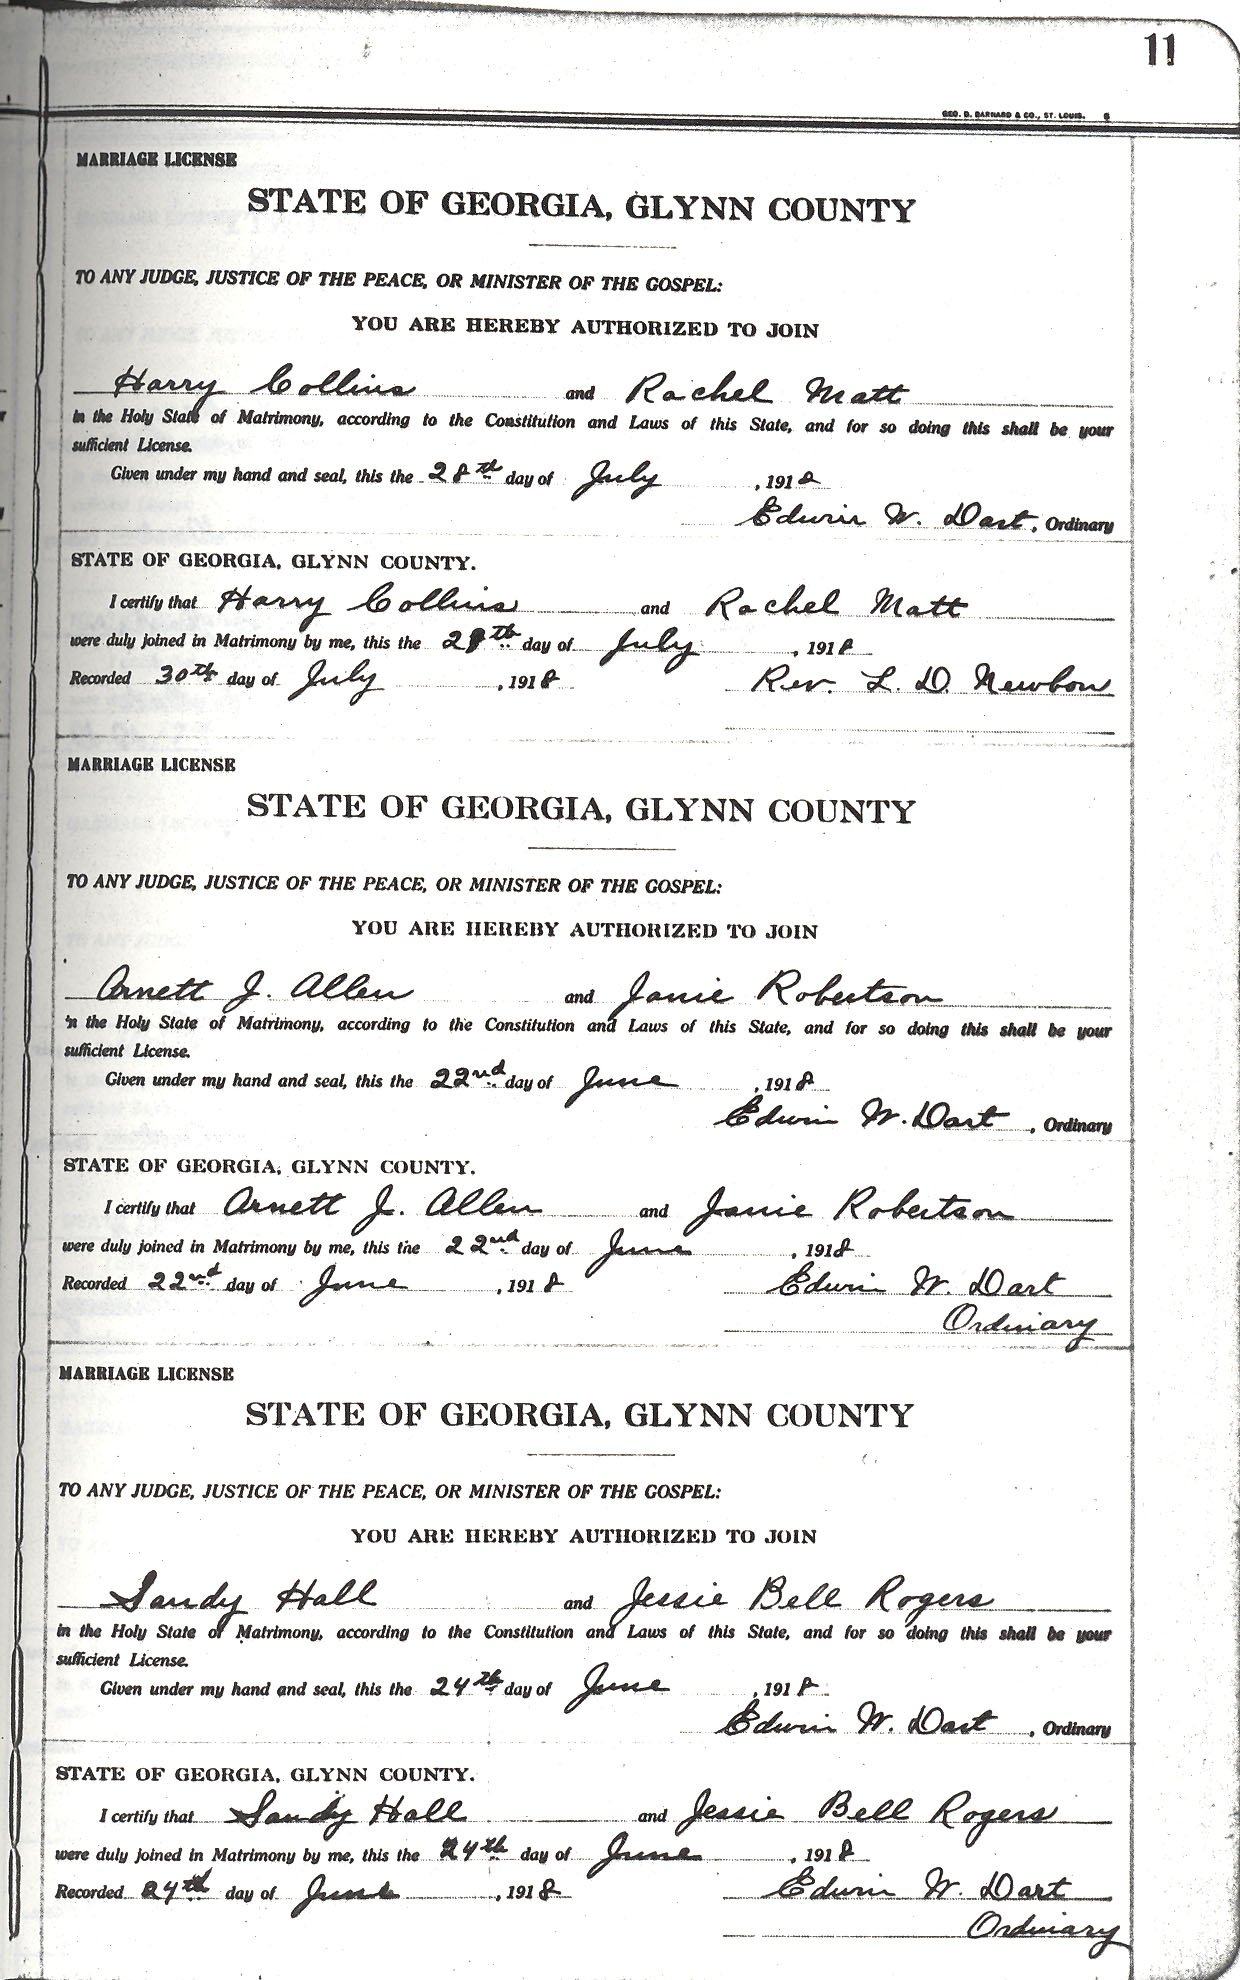 11
GEO. D. BARNARD & CO., ST. LOUIS.
MARRIAGE LICENSE
STATE OF GEORGIA, GLYNN COUNTY
TO ANY JUDGE, JUSTICE OF THE PEACE, OR MINISTER OF THE GOSPEL:
YOU ARE HEREBY AUTHORIZED TO JOIN
Harry Collins and Rachel Matt
in the Holy State of Matrimony, according to the Constitution and Laws of this State, and for so doing this shall be your
sufficient License.
Given under my hand and seal, this the 28th day of July, 1918
Edwin W. Dart, Ordinary
STATE OF GEORGIA, GLYNN COUNTY.
I certify that Harry Collins and Rachel Matt
were duly joined in Matrimony by me, this the 28th day of July, 1918
Recorded 30th day of July, 1918 Rev. L. D. Newbon
MARRIAGE LICENSE
STATE OF GEORGIA, GLYNN COUNTY
TO ANY JUDGE, JUSTICE OF THE PEACE, OR MINISTER OF THE GOSPEL:
YOU ARE HEREBY AUTHORIZED TO JOIN
Arnett J. Allen and Janie Robertson
in the Holy State of Matrimony, according to the Constitution and Laws of this State, and for so doing this shall be your
sufficient License.
Given under my hand and seal, this the 22nd day of June, 1918
Edwin W. Dart, Ordinary
STATE OF GEORGIA, GLYNN COUNTY.
I certify that Arnett J. Allen and Janie Robertson
were duly joined in Matrimony by me, this the 22nd day of June, 1918
Recorded 22nd day of June, 1918 Edwin W. Dart
Ordinary
MARRIAGE LICENSE
STATE OF GEORGIA, GLYNN COUNTY
TO ANY JUDGE, JUSTICE OF THE PEACE, OR MINISTER OF THE GOSPEL:
YOU ARE HEREBY AUTHORIZED TO JOIN
Sandy Hall and Jessie Bell Rogers
in the Holy State of Matrimony, according to the Constitution and Laws of this State, and for so doing this shall be your
sufficient License.
Given under my hand and seal, this the 24th day of June, 1918
Edwin W. Dart, Ordinary
STATE OF GEORGIA, GLYNN COUNTY.
I certify that Sandy Hall and Jessie Bell Rogers
were duly joined in Matrimony by me, this the 24th day of June, 1918
Recorded 24th day of June, 1918 Edwin W. Dart
Ordinary